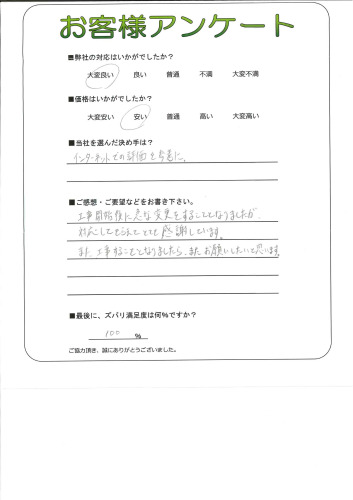 お客様アンケート
■弊社の対応はいかがでしたか？
大変良い 良い 普通 不満 大変不満
■価格はいかがでしたか？
大変安い 安い 普通 高い 大変高い
■当社を選んだ決め手は？
インターネットでの評価を参考に。
■ご感想・ご要望などをお書き下さい。
工事開始後に急な変更をすることとなりましたが、
対応してもらえてとても感謝しています。
また、工事することとなりましたら、また、お願いしたいと思います。
■最後に、ズバリ満足度は何％ですか？
100 ％
ご協力頂き、誠にありがとうございました。